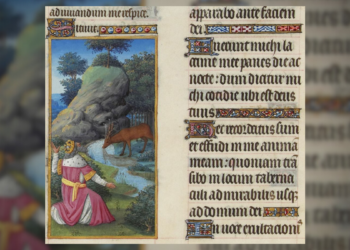 adiuuandum me respice.
Sitiuit
apparabo ante faciem
dei
Fuerunt michi la
crime mee panes die ac
nocte : dum dicitur mi
chi cotidie ubi est deus
tuus
Hec recordatus sum
et effudi in me anima
meam : quoniam tran
sibo in locum taberna
culi admirabilis usq
ad domum dei
In uoce exultationi